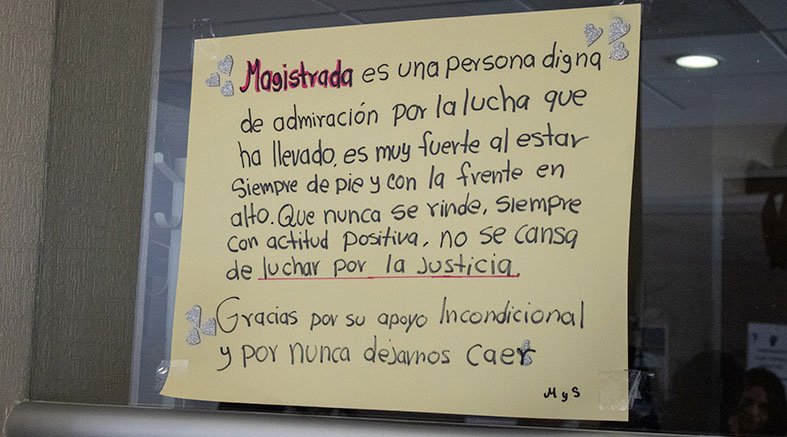 Magistrada es una persona digna
de admiración por la lucha que
ha llevado, es muy fuerte al estar
siempre de pie y con la frente en
alto. Que nunca se rinde, siempre
con actitud positiva, no se cansa
de luchar por la justicia.
Gracias por su apoyo Incondicional
y por nunca dejarnos caer
M y S